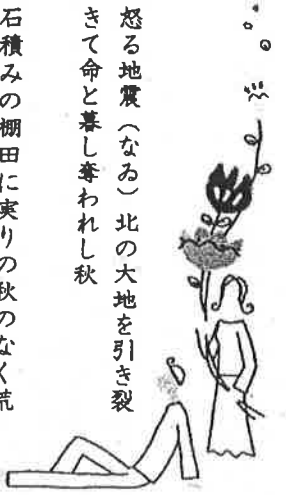 怒る地震（なゐ）北の大地を引き裂
きて命と暮し奪われし秋
石積みの棚田に実りの秋のなく荒